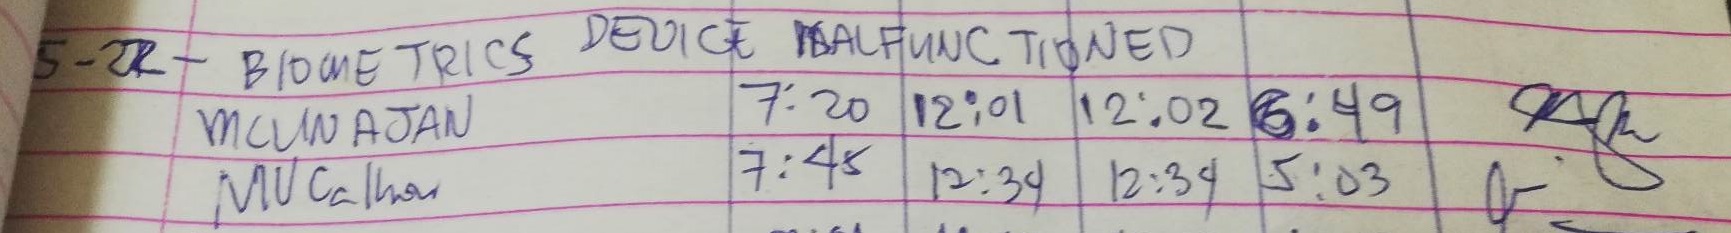 5-22 - BIOMETRICS DEVICE MALFUNCTIONED
MCUNAJAN 7:20 12:01 12:02 6:49
MVCalhou 7:45 12:34 12:34 5:03